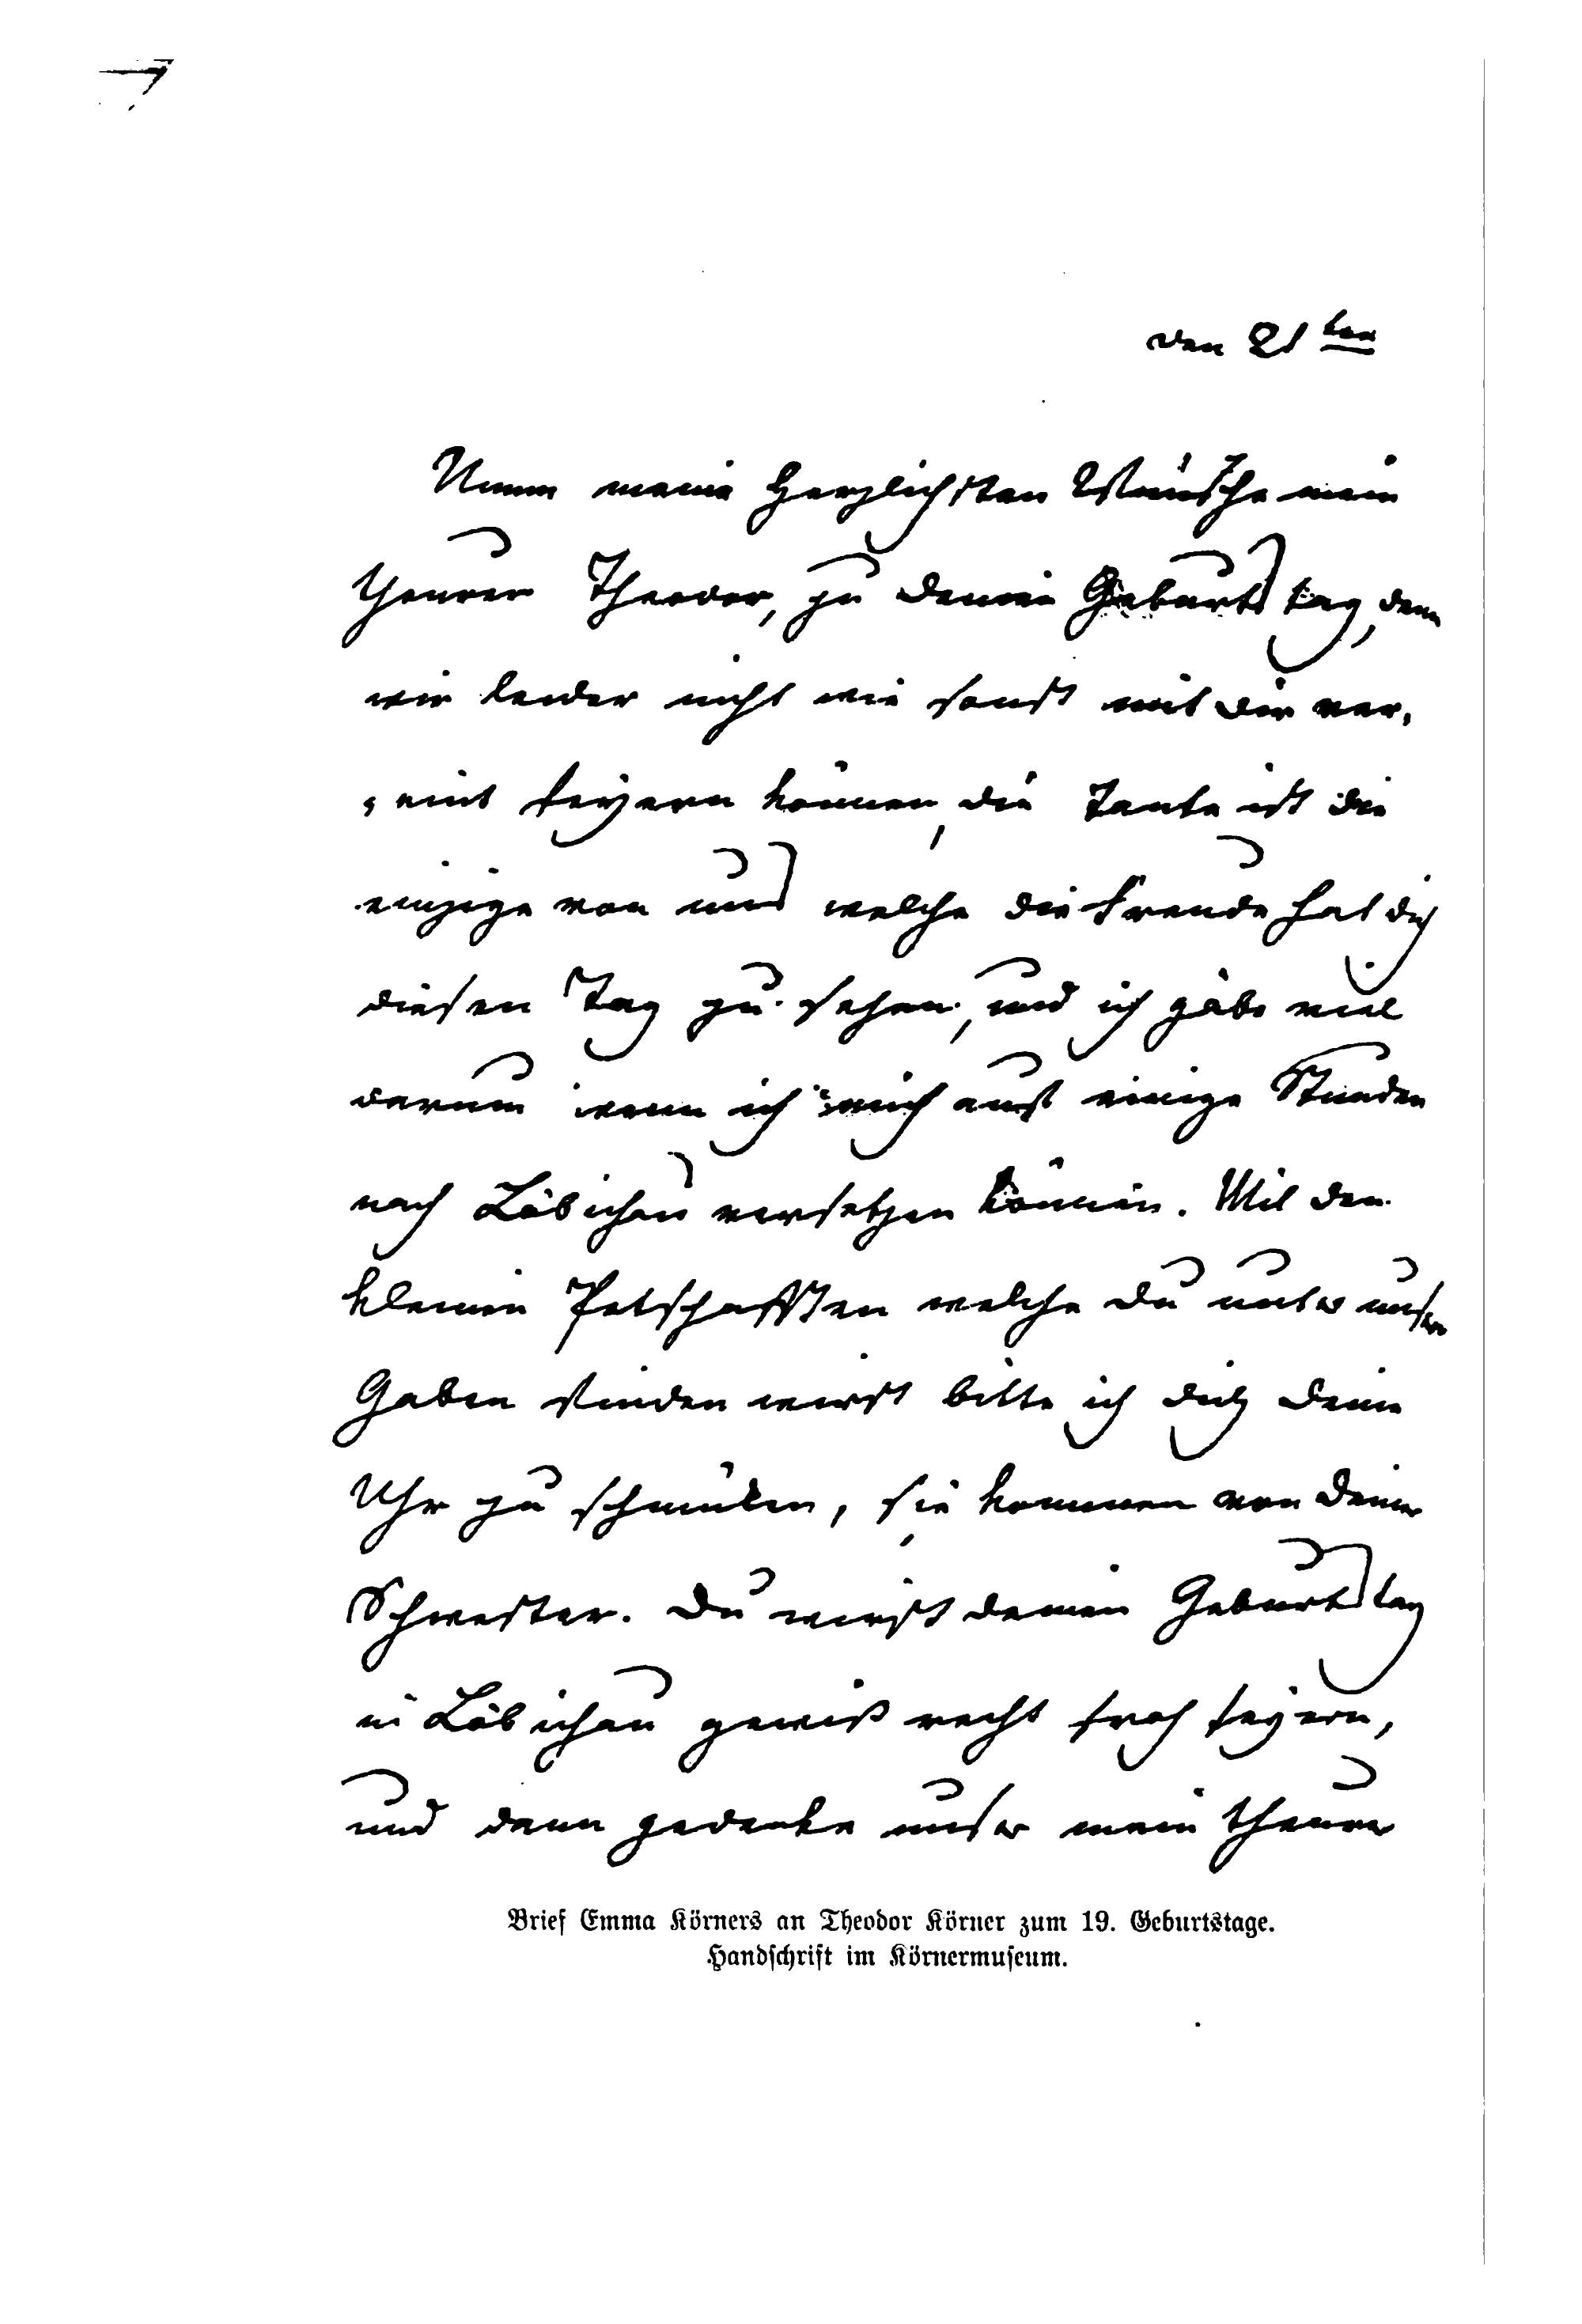 den 21ten
Nimm meine herzlichsten Wünsche mein
theurer Theodor, zu deinem Geburtstag, den
wir leider nicht wie sonst mit dir ver,
,eint feyern können, die Tante ist die
einzige von uns welche die Freude hat dich
diesen Tag zu sehen, und ich gäbe viel
darum wenn ich mich auf einige Stunden
nach Löbichau versetzen könnte. Mit den
kleinen Petschafften welche du unter unsern
Gaben finden wirst bitte ich dich deine
Uhr zu schmüken, sie kommen von deiner
Schwester. Du wirst deinen Geburtstag
in Löbichau gewiß recht froh feyern,
und dann gedenke unser mein theurer
Brief Emma Körners an Theodor Körner zum 19. Geburtstage.
Handschrift im Körnermuseum.